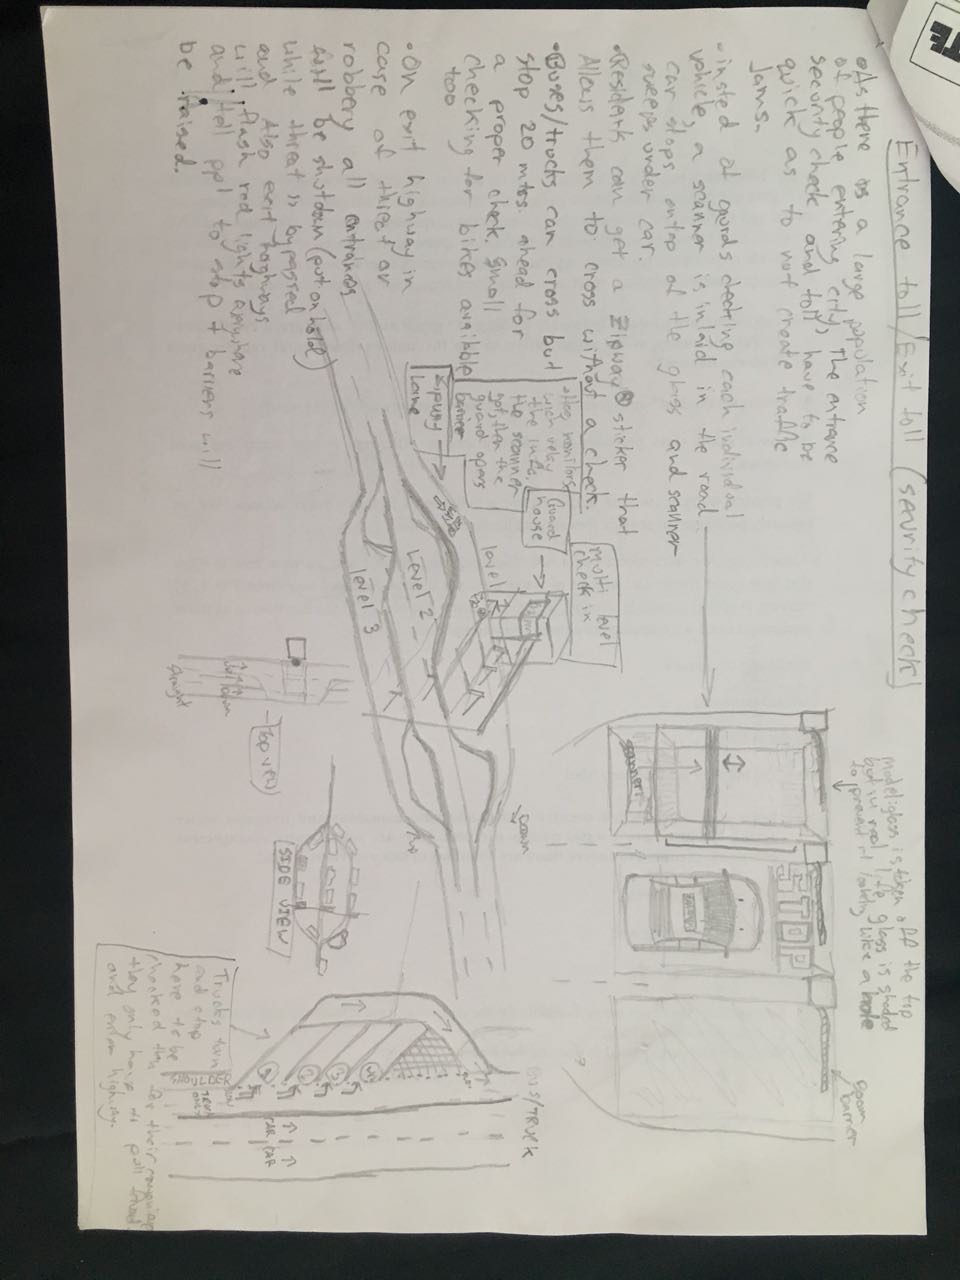 Entrance toll/Exit toll (security check)
•As there is a large population
of people entering city, The entrance
security check and toll have to be
quick as to not create traffic
Jams.
•insted of gurds checking each individual
vehicle, a scanner is inlaid in the road
car stops ontop of the glass and scanner
sweeps under car.
•Residents can get a Zipway® sticker that
Allows them to cross without a check.
•Buses/trucks can cross but
stop 20 mtrs. ahead for
a proper check. Small
checking for bikes available
too
•On exit highway in
case of thieft or
robbery all entrances
will be shutdown (put on hold)
while threat is bypassed
and Also exit highways
will flash red lights anywhere
and tell ppl to stop + barriers will
be raised.
multi level
check in
Guard
house
monitors
wich relay
the info.
the scanner
got, then the
guard opens
barrier
Zipway
Lane
level 1
Level 2
Level 3
Down
UP
model:glass is taken off the top
but in real life glass is shaded
to prevent it looking like a hole
boom
barrier
scanner
STOP
Top view
straight
SIDE VIEW
BUS/TRUCK
Trucks turn
and stop
have to be
checked then
they only have to pull ahead
and enter highway.
SHOULDER
TRUCK
CAR
CAR